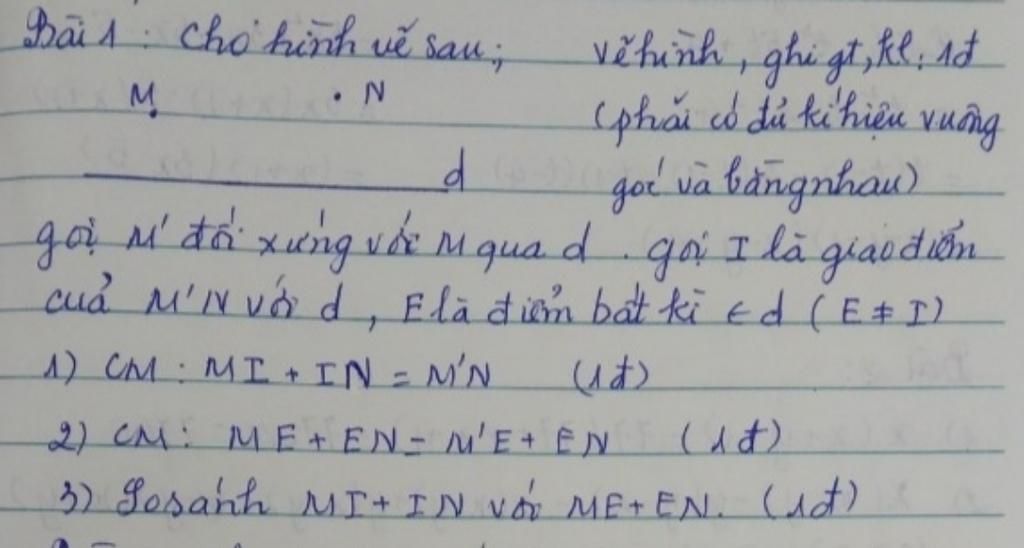 Bài 1 : Cho hình vẽ sau; vẽ hình, ghi gt, kl: 1đ
M . N (phải có đủ kí hiệu vuông
d góc và bằng nhau)
gọi M' đối xứng với M qua d. gọi I là giao điểm
của M'N với d, E là điểm bất kì ∈ d (E ≠ I)
1) CM : MI + IN = M'N (1đ)
2) CM: ME + EN = M'E + EN (1đ)
3) So sánh MI + IN với ME + EN. (1đ)